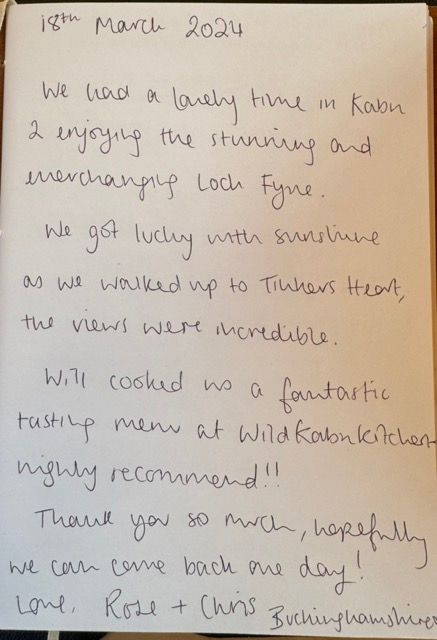 18th March 2024
We had a lovely time in Kabn
2 enjoying the stunning and
everchanging Loch Fyne.
We got lucky with sunshine
as we walked up to Tinkers Heart,
the views were incredible.
Will cooked us a fantastic
tasting menu at WildKabnKitchen
highly recommend!!
Thank you so much, hopefully
we can come back one day!
Love, Rose + Chris Buckinghamshire